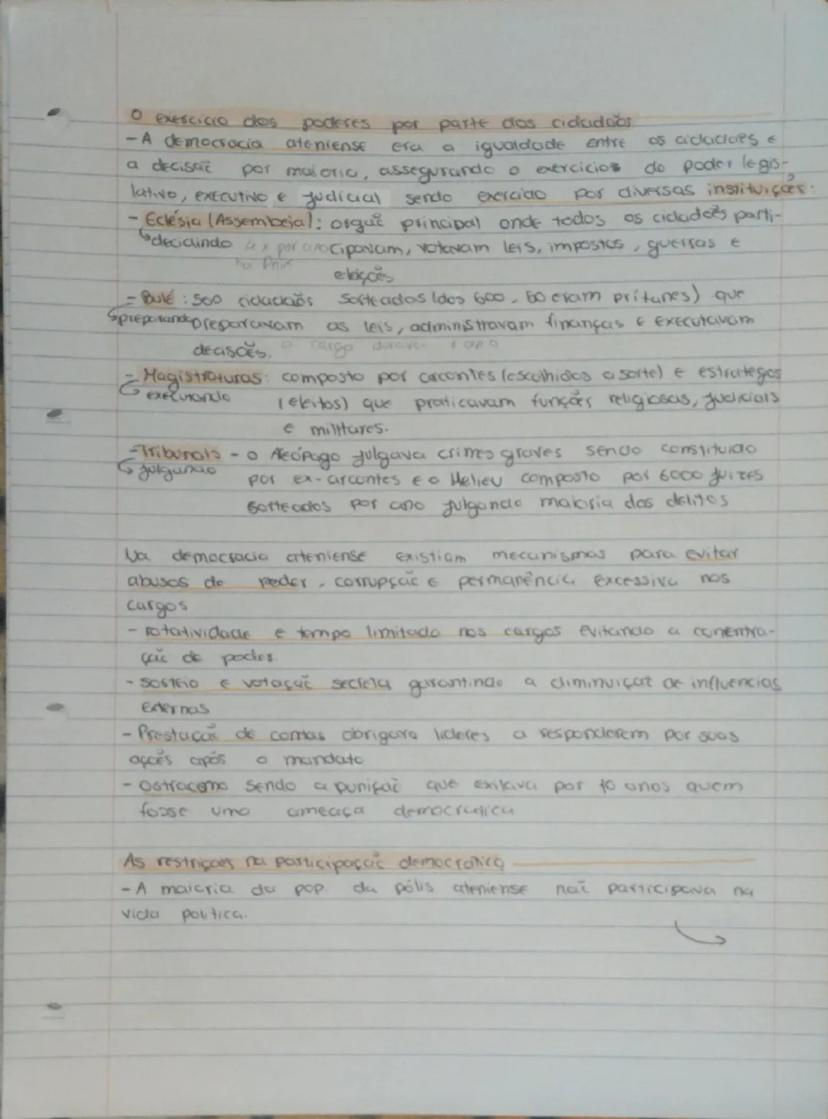 O exercício dos poderes por parte dos cidadãos
- A democracia ateniense era a igualdade entre os cidadãos e
a decisão por maioria, assegurando o exercicios do poder legis-
lativo, executivo e judicial sendo exercido por diversas instituições:
- Eclésia (Assembeia): orgão principal onde todos os cidadãos parti-
decidindo 4x por ano cipavam, votavam leis, impostos, guerras e
eleições
- Bulé: 500 cidadãos sorteados (dos 600, 50 eram prítanes) que
preparando preparavam as leis, administravam finanças e executavam
decisões. o cargo durava 1 ano
- Magistraturas: composto por arcontes (escolhidos a sorte) e estrategos
executando (eleitos) que praticavam funções religiosas, judiciais
e militares.
- Tribunais - o Aeópago julgava crimes graves sendo constituido
julgando por ex-arcontes e o Helieu composto por 6000 juizes
sorteados por ano julgando maioria dos delitos
Na democracia ateniense existiam mecanismos para evitar
abusos de poder, corrupção e permanência excessiva nos
cargos
- rotatividade e tempo limitado nos cargos evitando a conentra-
ção de poder.
- sorteio e votação secreta garantindo a diminuição de influencias
externas
- Prestação de contas obrigava lideres a responderem por suas
ações após o mandato
- ostracomo sendo a punição que exilava por 10 anos quem
fosse uma ameaça democratica
As restriçoes na participação democratica
- A maioria da pop. da pólis ateniense não participava na
vida politica.